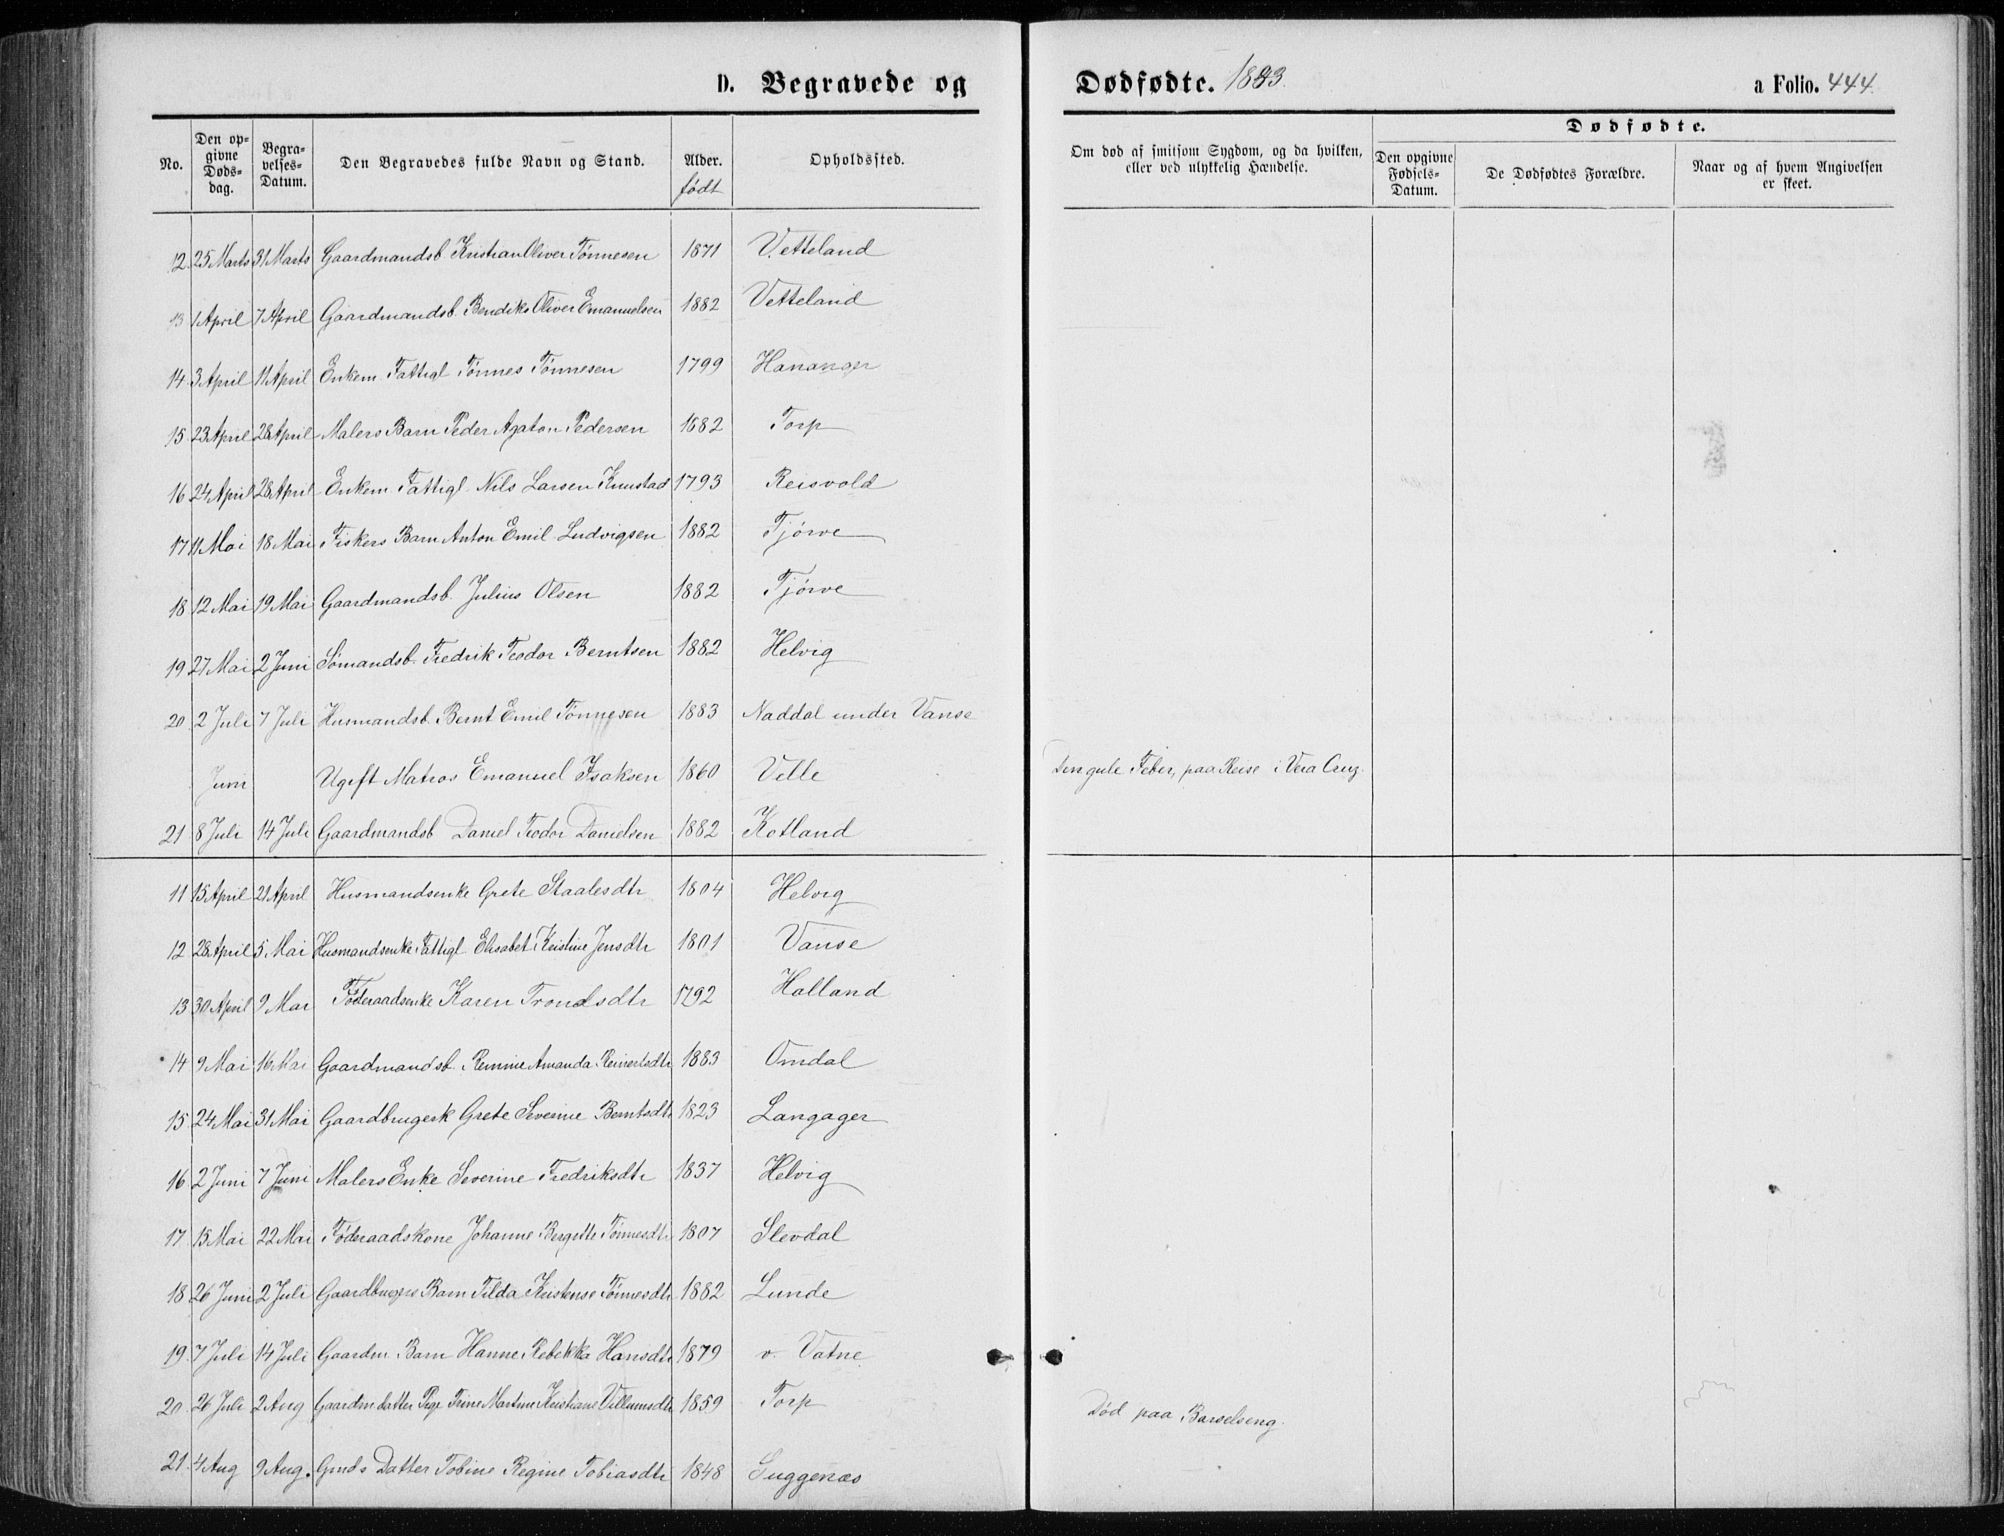 D. Begravede og Dødfødte. 1883. a Folio. 444.
No. Den opgivne Dødsdag. Begravelses-Datum. Den Begravedes fulde Navn og Stand. Alder. født Opholdssted. Om død af smitsom Sygdom, og da hvilken, eller ved ulykkelig Hændelse. Dødfødte. Den opgivne Fødsels-Datum. De Dødfødtes Forældre. Naar og af hvem Angivelsen er skeet.
12 25 Marts 31 Marts Gaardmandsb. Kristian Oliver Tønnesen 1871 Vetteland
13 1 April 7 April Gaardmandsb. Bendiks Oliver Emanuelsen 1882 Vetteland
14 3 April 11 April Enkem. Fattigl. Tønnes Tønnesen 1799 Hananger
15 23 April 28 April Malers Barn Peder Agaton Pedersen 1882 Torp
16 24 April 28 April Enkem. Fattigl. Nils Larsen Knustad 1793 Reisvold
17 11 Mai 18 Mai Fiskers Barn Anton Emil Ludvigsen 1882 Tjørve
18 12 Mai 19 Mai Gaardmandsb. Julius Olsen 1882 Tjørve
19 27 Mai 2 Juni Sømandsb. Fredrik Teodor Berntsen 1882 Helvig
20 2 Juli 7 Juli Husmandsb. Bernt Emil Tønnesen 1883 Naddal under Vanse
Juni Ugift Matros Emanuel Isaksen 1860 Velle Den gule Feber, paa Reise i Vera Cruz.
21 8 Juli 14 Juli Gaardmandsb. Daniel Teodor Danielsen 1882 Kotland
11 15 April 21 April Husmandsenke Grete Staalesdtr 1804 Helvig
12 28 April 5 Mai Husmandsenke Fattigl. Elisabet Kristine Jensdtr 1801 Vanse
13 30 April 9 Mai Føderaadsenke Karen Trondsdtr 1792 Halland
14 9 Mai 16 Mai Gaardmandsb. Remine Amanda Reinertsdtr 1883 Omdal
15 24 Mai 31 Mai Gaardbrugersk Grete Severine Berntsdtr 1823 Langager
16 2 Juni 7 Juni Malers Enke Severine Fredriksdtr 1837 Helvig
17 15 Mai 22 Mai Føderaadskone Johanne Bergitte Tønnesdtr 1807 Slevdal
18 26 Juni 2 Juli Gaardbrugers Barn Tilda Kristense Tønnesdtr 1882 Lunde
19 7 Juli 14 Juli Gaardm. Barn Hanne Rebekka Hansdtr 1879 v. Vatne
20 26 Juli 2 Aug Gaardm datter Pige Trine Martine Kristiane Villumsdtr 1859 Torp Død paa Barselseng.
21 4 Aug 9 Aug. Gmds Datter Tobine Regine Tobiasdtr 1848 Guggenæs